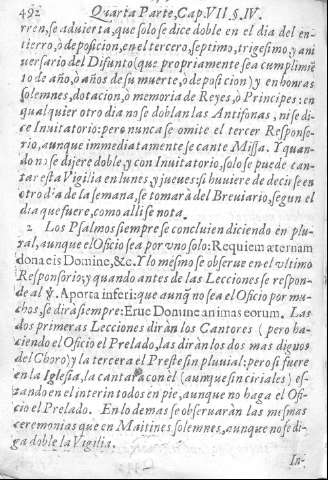 492 Quarta Parte, Cap. VII. §. IV.
rren, se aduierta, que solo se dice doble en el dia del en-
tierro, ò deposicion, en el tercero, septimo, trigesimo, y ani
uersario del Difunto (que propriamente sea cumplimiē
to de año, ò años de su muerte, ò deposicion) y en honras
solemnes, dotacion, ò memoria de Reyes, ò Principes: en
qualquier otro dia no se doblan las Antifonas, ni se di-
ce Inuitatorio: pero nunca se omite el tercer Responso-
rio, aunque immediatamente se cante Missa. Y quan-
do no se dijere doble, y con Inuitatorio, solo se puede can-
tar esta Vigilia en lunes, y jueues: si huuiere de decirse en
otro dia de la semana, se tomarà del Breuiario, segun el
dia que fuere, como alli se nota.
2 Los Psalmos siempre se concluien diciendo en plu-
ral, aunque el Oficio sea por vno solo: Requiem æternam
dona eis Domine, &c. Y lo mesmo se obserue en el vltimo
Responsorio; y quando antes de las Lecciones se respon-
de al ℣. A porta inferi: que aunq̃ no sea el Oficio por mu-
chos, se dirà siempre: Erue Domine animas eorum. Las
dos primeras Lecciones diràn los Cantores (pero ha-
ciendo el Oficio el Prelado, las diràn los dos mas dignos
del Choro) y la tercera el Preste sin pluuial: pero si fuere
en la Iglesia, la cantarà con èl (aunque sin ciriales) es-
tando en el interin todos en pie, aunque no haga el Ofi-
cio el Prelado. En lo demas se obseruaràn las mismas
ceremonias que en Maitines solemnes, aunque no se di-
ga doble la Vigilia.
In-